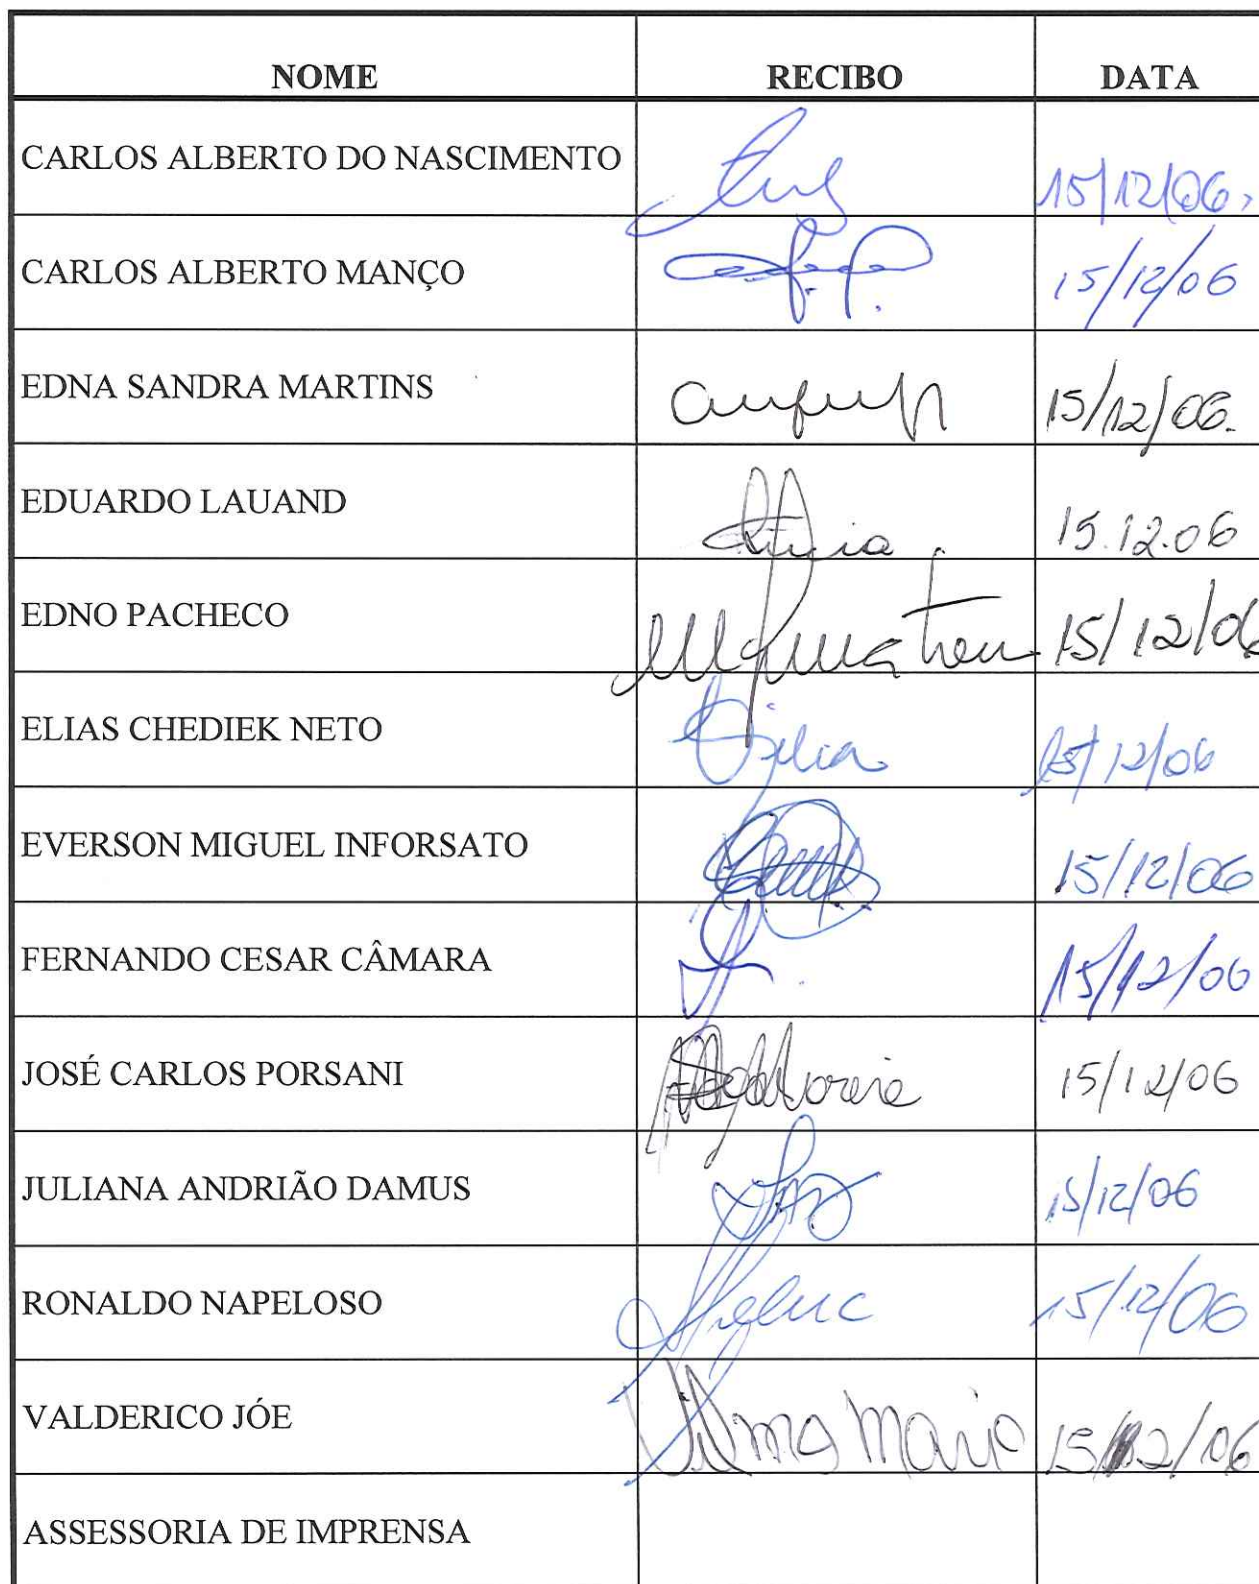 NOME RECIBO DATA
CARLOS ALBERTO DO NASCIMENTO 15/12/06
CARLOS ALBERTO MANÇO 15/12/06
EDNA SANDRA MARTINS 15/12/06.
EDUARDO LAUAND 15.12.06
EDNO PACHECO 15/12/06
ELIAS CHEDIEK NETO 15/12/06
EVERSON MIGUEL INFORSATO 15/12/06
FERNANDO CESAR CÂMARA 15/12/06
JOSÉ CARLOS PORSANI 15/12/06
JULIANA ANDRIÃO DAMUS 15/12/06
RONALDO NAPELOSO 15/12/06
VALDERICO JÓE Vilma Maria 15/12/06
ASSESSORIA DE IMPRENSA